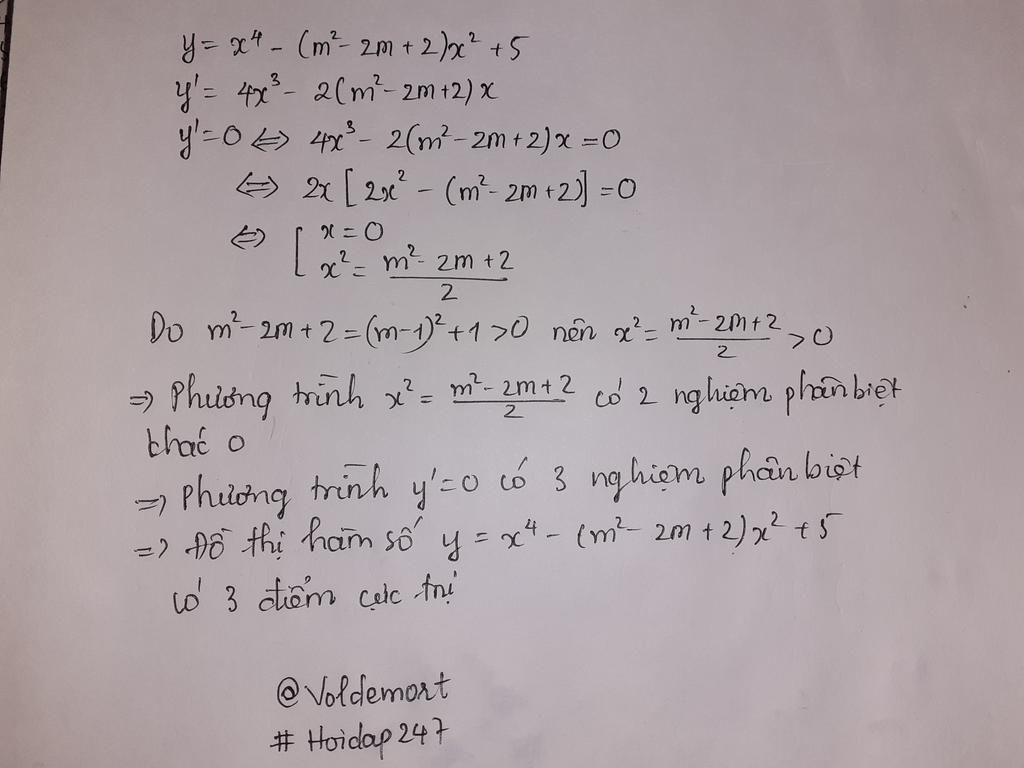 y = x⁴ - (m² - 2m + 2)x² + 5
y' = 4x³ - 2(m² - 2m + 2) x
y' = 0 ⇔ 4x³ - 2(m² - 2m + 2) x = 0
⇔ 2x [ 2x² - (m² - 2m + 2)] = 0
⇔ [ x = 0
x² = (m² - 2m + 2)/2
Do m² - 2m + 2 = (m-1)² + 1 > 0 nên x² = (m² - 2m + 2)/2 > 0
⇒ Phương trình x² = (m² - 2m + 2)/2 có 2 nghiệm phân biệt
khác 0
⇒ Phương trình y' = 0 có 3 nghiệm phân biệt
⇒ Đồ thị hàm số y = x⁴ - (m² - 2m + 2) x² + 5
có 3 điểm cực trị
@Voldemort
# Hoidap247